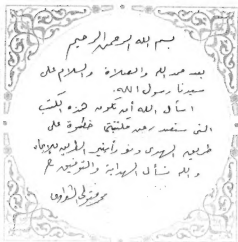 بسم الله الرحمن الرحيم
بعد حمد الله والصلاة والسلام على
سيدنا رسول الله.
أسأل الله أن تكون هذه الكتب
التى ستصدر عن مكتبتى خطوة على
طريق الهدى ونوراً ينير الطريق
والله نسأل الهداية والتوفيق
محمد متولى الشعراوى